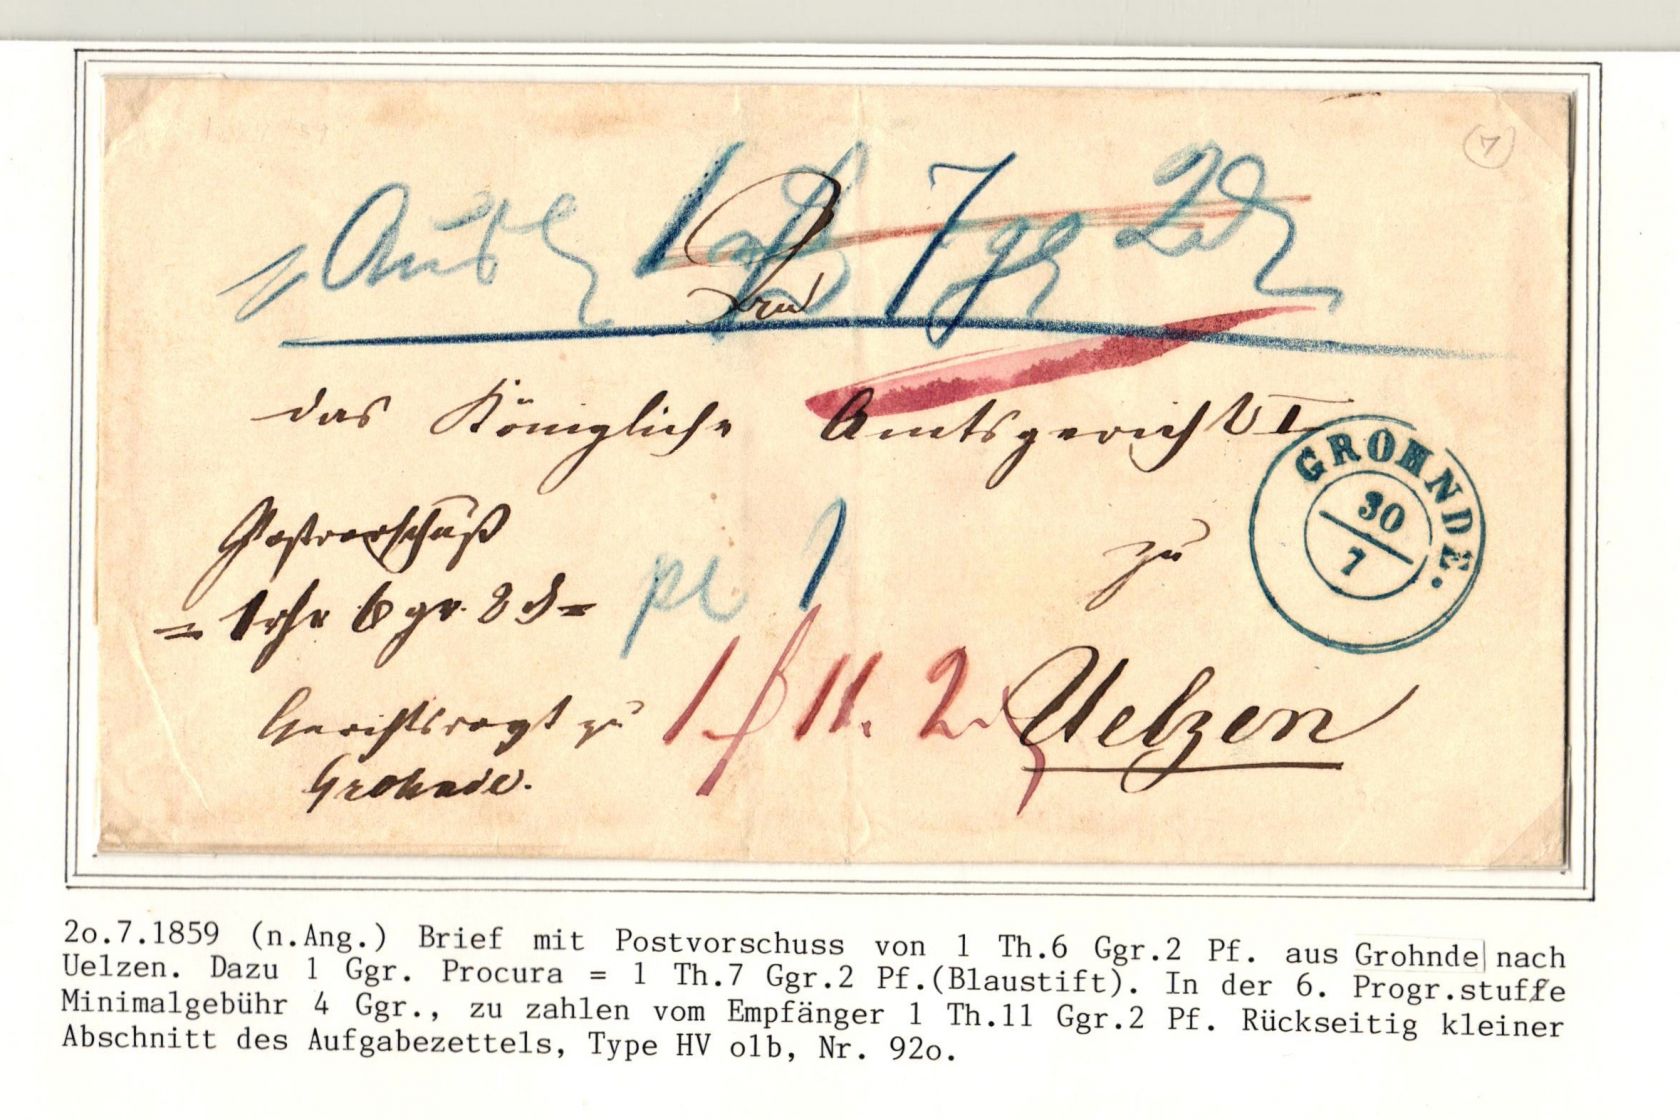 Ausl 1 rth 7 gr 2 d
An
das Königliche Amtsgericht I
GROHNDE.
30
7
Postvorschuß
= 1 rthr 6 gr. 2 d =
pr 1
zu
1 f 11. 2
Uelzen
Gerichtsvogt zu
Grohnde.
7
2o.7.1859 (n.Ang.) Brief mit Postvorschuss von 1 Th.6 Ggr.2 Pf. aus Grohnde nach
Uelzen. Dazu 1 Ggr. Procura = 1 Th.7 Ggr.2 Pf.(Blaustift). In der 6. Progr.stuffe
Minimalgebühr 4 Ggr., zu zahlen vom Empfänger 1 Th.11 Ggr.2 Pf. Rückseitig kleiner
Abschnitt des Aufgabezettels, Type HV o1b, Nr. 92o.